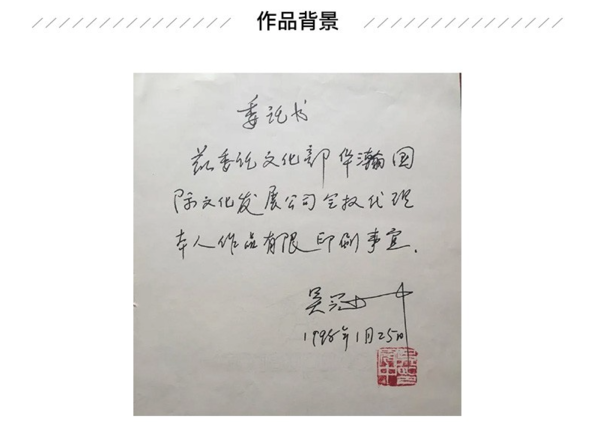 作品背景
委讬书
兹委讬文化部华瀚国
际文化发展公司全权代理
本人作品有限印刷事宜.
吴冠中
1998年1月25日